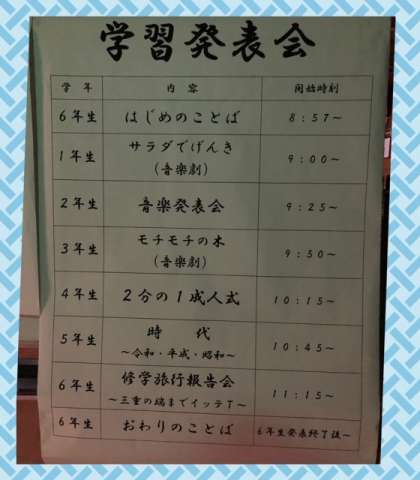 学習発表会
学年 内容 開始時刻
6年生 はじめのことば 8:57～
1年生 サラダでげんき (音楽劇) 9:00～
2年生 音楽発表会 9:25～
3年生 モチモチの木 (音楽劇) 9:50～
4年生 2分の1成人式 10:15～
5年生 時代 ～令和・平成・昭和～ 10:45～
6年生 修学旅行報告会 ～三重の端までイッテQ～ 11:15～
6年生 おわりのことば 6年生発表終了後～